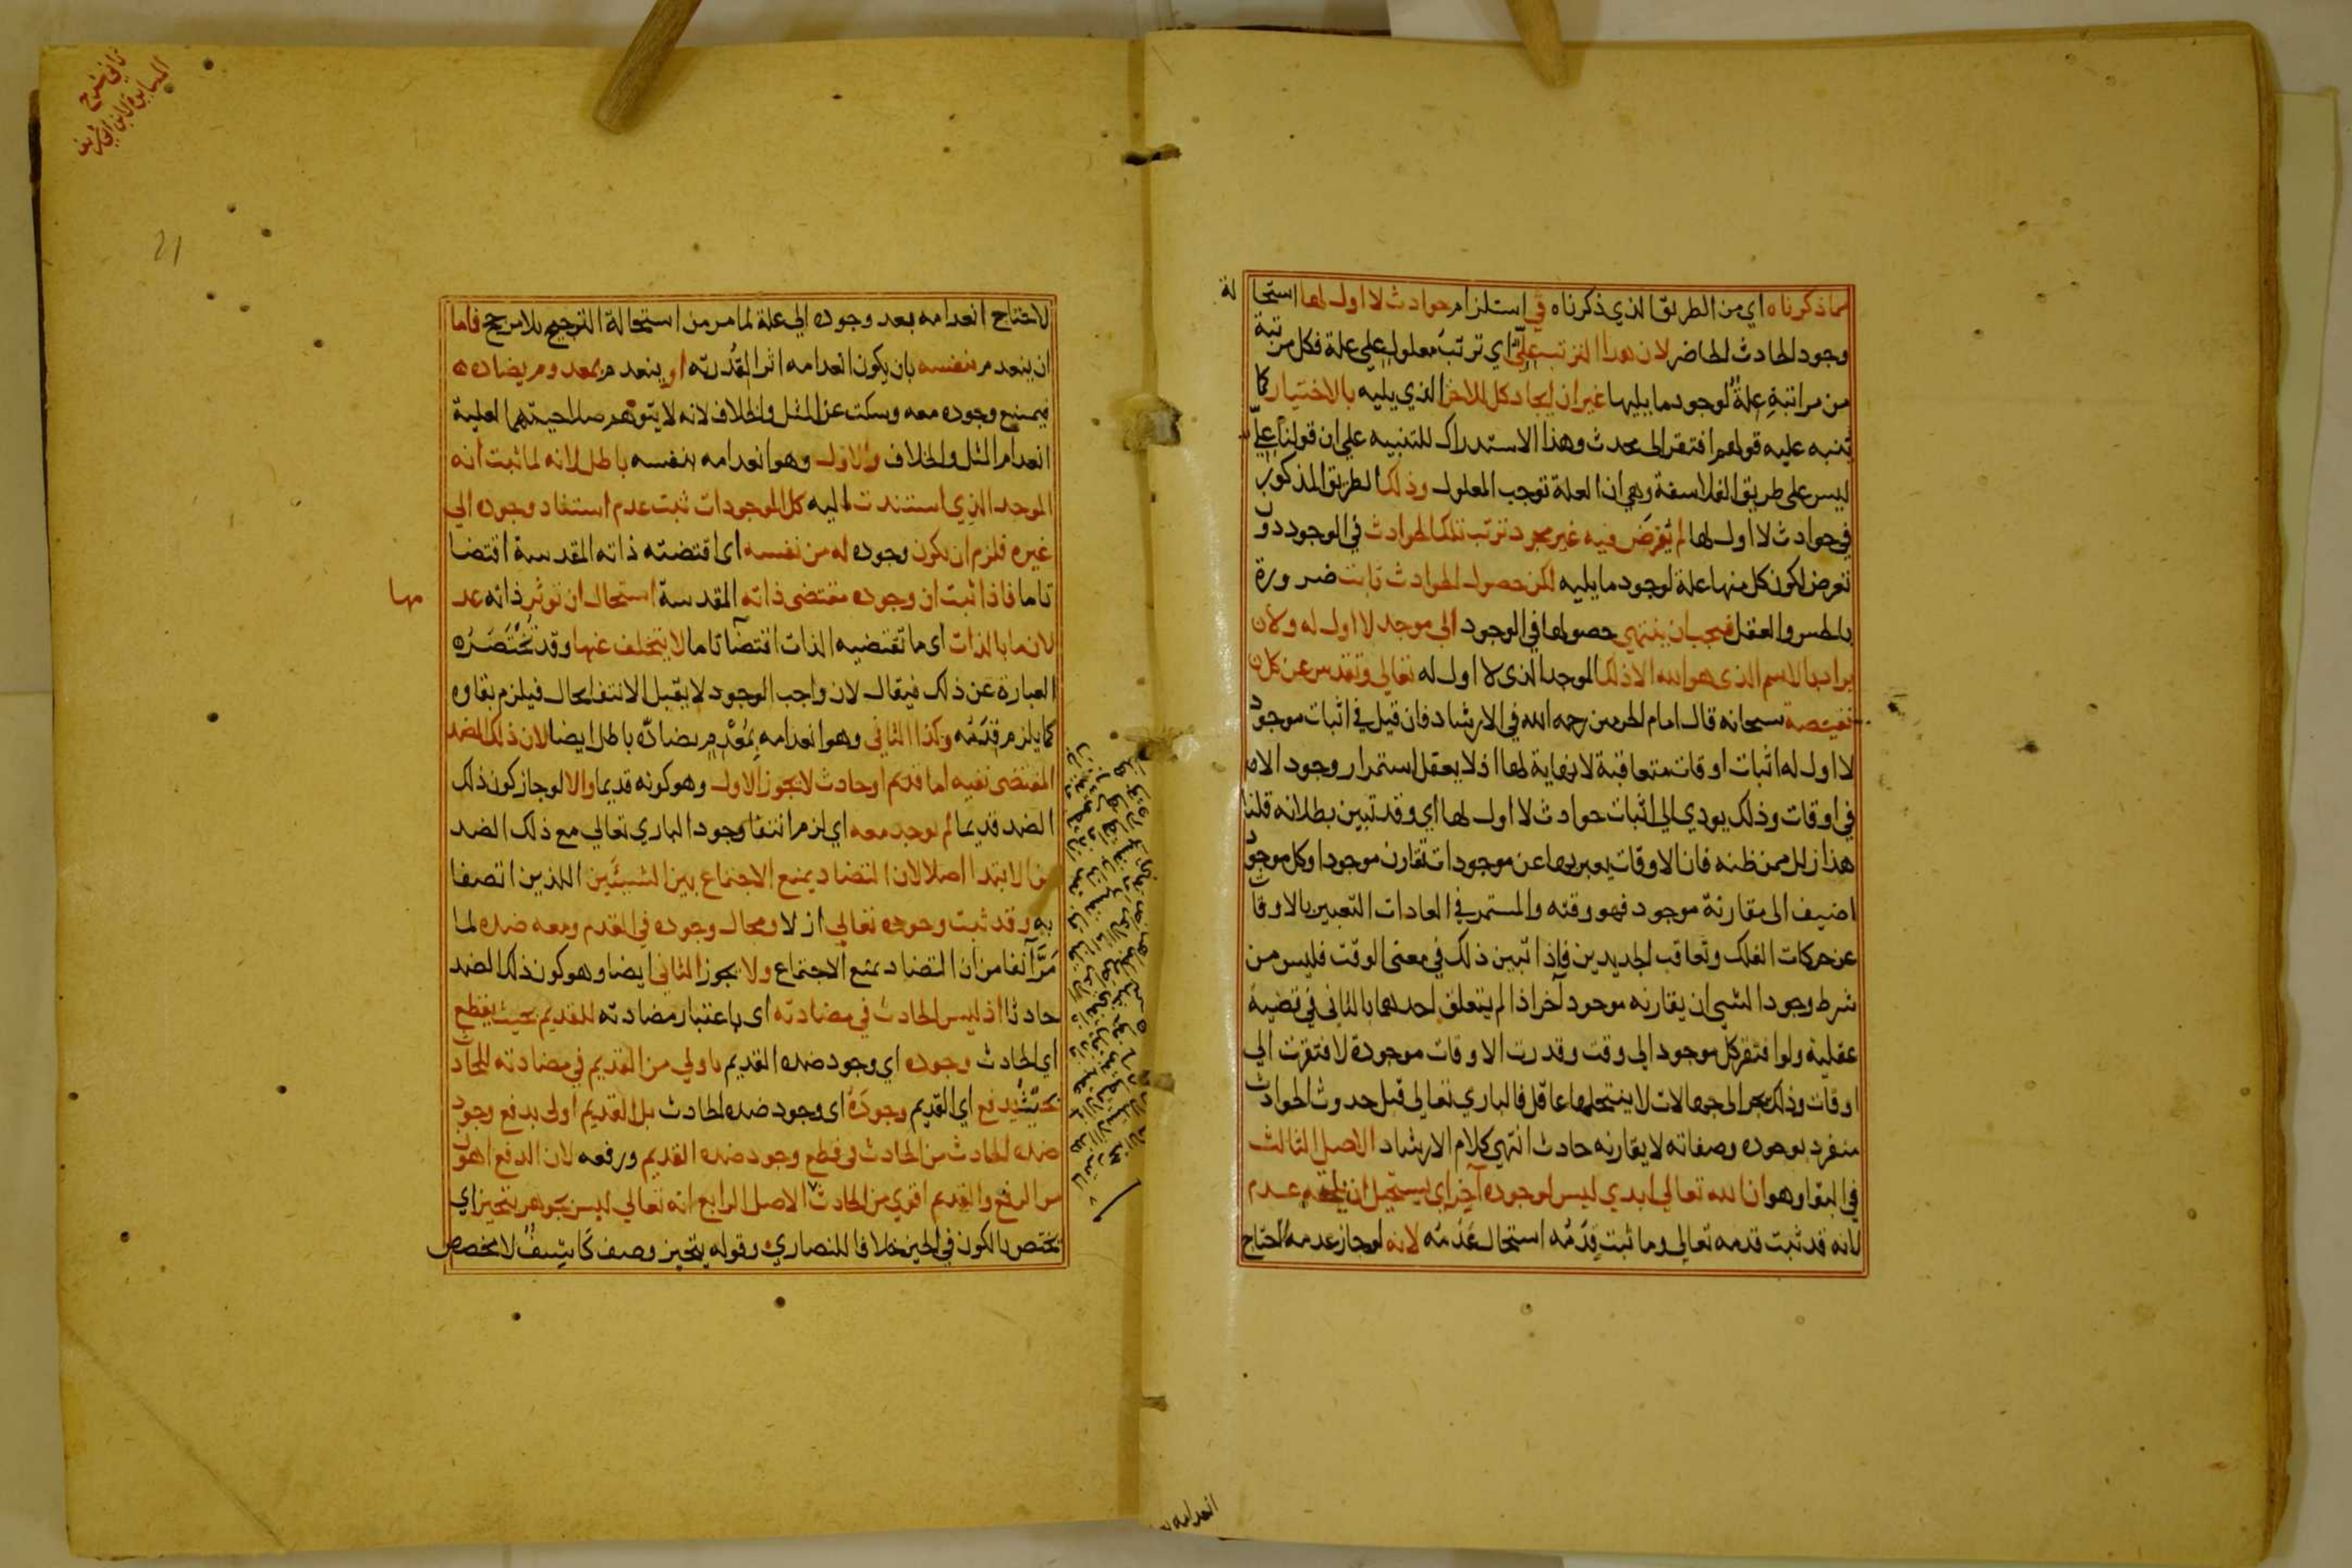 مما ذكرناه اي من الطريق الذي ذكرناه في استلزام حوادث لا اول لها استحالة
وجود الحادث الحاضر لان هذا الترتيب علّيّ اي ترتب معلول على علة فكل مرتبة
من مراتبه علة لوجود ما يليها غير ان ايجاد كل للاخر الذي يليه بالاختيار كما
ينبه عليه قولهم افتقر الى محدث وهذا الاستدراك للتنبيه على ان قولنا علّيّ
ليس على طريق الفلاسفة وهي ان العلة توجب المعلول وذلك الطريق المذكور
في حوادث لا اول لها لم يُفرَض فيه غير مجرد ترتب تلك الحوادث في الوجود دون
تعرض لكون كل منها علة لوجود ما يليه لكن حصول الحوادث ثابت ضرورة
بالحس والعقل فيجب ان ينتهي حصولها في الوجود الي موجد لا اول له ولا
يراد بالاسم الذي هو الله الا ذلك الموجد الذي لا اول له تعالي وتقدس عن كل
نقيصة سبحانه قال امام الحرمين رحمه الله في الارشاد فان قيل في اثبات موجود
لا اول له اثبات اوقات متعاقبة لا نهاية لها اذ لا يعقل استمرار وجود الا
في اوقات وذلك يودي الي اثبات حوادث لا اول لها اي وقد تبين بطلانه قلنا
هذا زلل ممن ظنه فان الاوقات يعبر بها عن موجودات تقارن موجودا وكل موجود
اضيف الى مقارنة موجود فهو وقته والمستمر في العادات التعبير بالاوقات
عن حركات الفلك وتعاقب الجديدين فاذا تبين ذلك في معنى الوقت فليس من
شرط وجود الشي ان يقارنه موجود آخر اذا لم يتعلق احدهما بالثاني في قضية
عقلية ولو افتقر كل موجود الي وقت وقدرت الاوقات موجودة لافتقرت الي
اوقات وذلك يجر الى جهالات لا ينتحلها عاقل فالباري تعالي قبل حدوث الحوادث
منفرد بوجوده وصفاته لا يقارنه حادث انتهي كلام الارشاد الاصل الثالث
في البقا وهو ان الله تعالي ابدي ليس لوجوده آخر اي يستحيل ان يلحقه عدم
لانه قد ثبت قدمه تعالي وما ثبت قِدَمُه استحال عَدَمُه لانه لو جاز عدمه لاحتاج
انعدامه
لاحتاج انعدامه بعد وجوده الي علة لما مر من استحالة الترجيح بلا مرجح فاما
ان ينعدم بنفسه بان يكون انعدامه اثرا لقُدرته او ينعدم بمعدوم يضاده
فيمتنع وجوده معه وسكت عن المثل والخلاف لانه لا يتوهم صلاحيتهما لعلية
انعدام المثل والخلاف والاول وهو انعدامه بنفسه باطل لانه لما ثبت انه
الموجد الذي استندت اليه كل الموجودات ثبت عدم استفاد وجوده الي
غيره فلزم ان يكون وجوده له من نفسه اى اقتضته ذاته المقدسة اقتضا
تاما فاذا ثبت ان وجوده مقتضى ذاته المقدسة استحال ان تؤثر ذاته عدمها
لان ما بالذات اى ما تقتضيه الذات اقتضآ تاما لا يتخلف عنها وقد تُختَصَرُ
العبارة عن ذلك فيقال لان واجب الوجود لا يقبل الانتفا بحال فيلزم بقاوه
كما يلزم قِدَمُه وكذا الثاني وهو انعدامه بِمُعْدِمٍ يضادّه باطل ايضا لان ذلك الضد
المقتضى نفيه اما قديم او حادث لا يجوز الاول وهو كونه قديما والا لو جاز كون ذلك
الضد قديما لم يوجد معه اي لزم انتفا وجود الباري تعالي مع ذلك الضد
من الابتدا اصلا لان التضاد يمنع الاجتماع بين الشيئين اللذين اتصفا
به وقد ثبت وجوده تعالي ازلا ومحال وجوده في القدم ومعه ضده لما
مَرَّ آنفا من ان التضاد يمنع الاجتماع ولا يجوز الثاني ايضا وهو كون ذلك الضد
حادثا اذ ليس الحادث في مضادته اى باعتبار مضادته للقديم بحيث يقطع
اي الحادث وجوده اي وجود ضده القديم باولي من القديم في مضادته للحادث
بحيث يدفع اي القديم وجودَهُ اى وجود ضده الحادث بل القديم اولى بدفع وجود
ضده الحادث من الحادث في قطع وجود ضده القديم ورفعه لان الدفع اهون
من الرفع والقديم اقوي من الحادث الاصل الرابع انه تعالي ليس بجوهر يتحيز اي
يختص بالكون في الحيز خلافا للنصاري وقوله يتحيز وصف كاشِفٌ لا مخصص